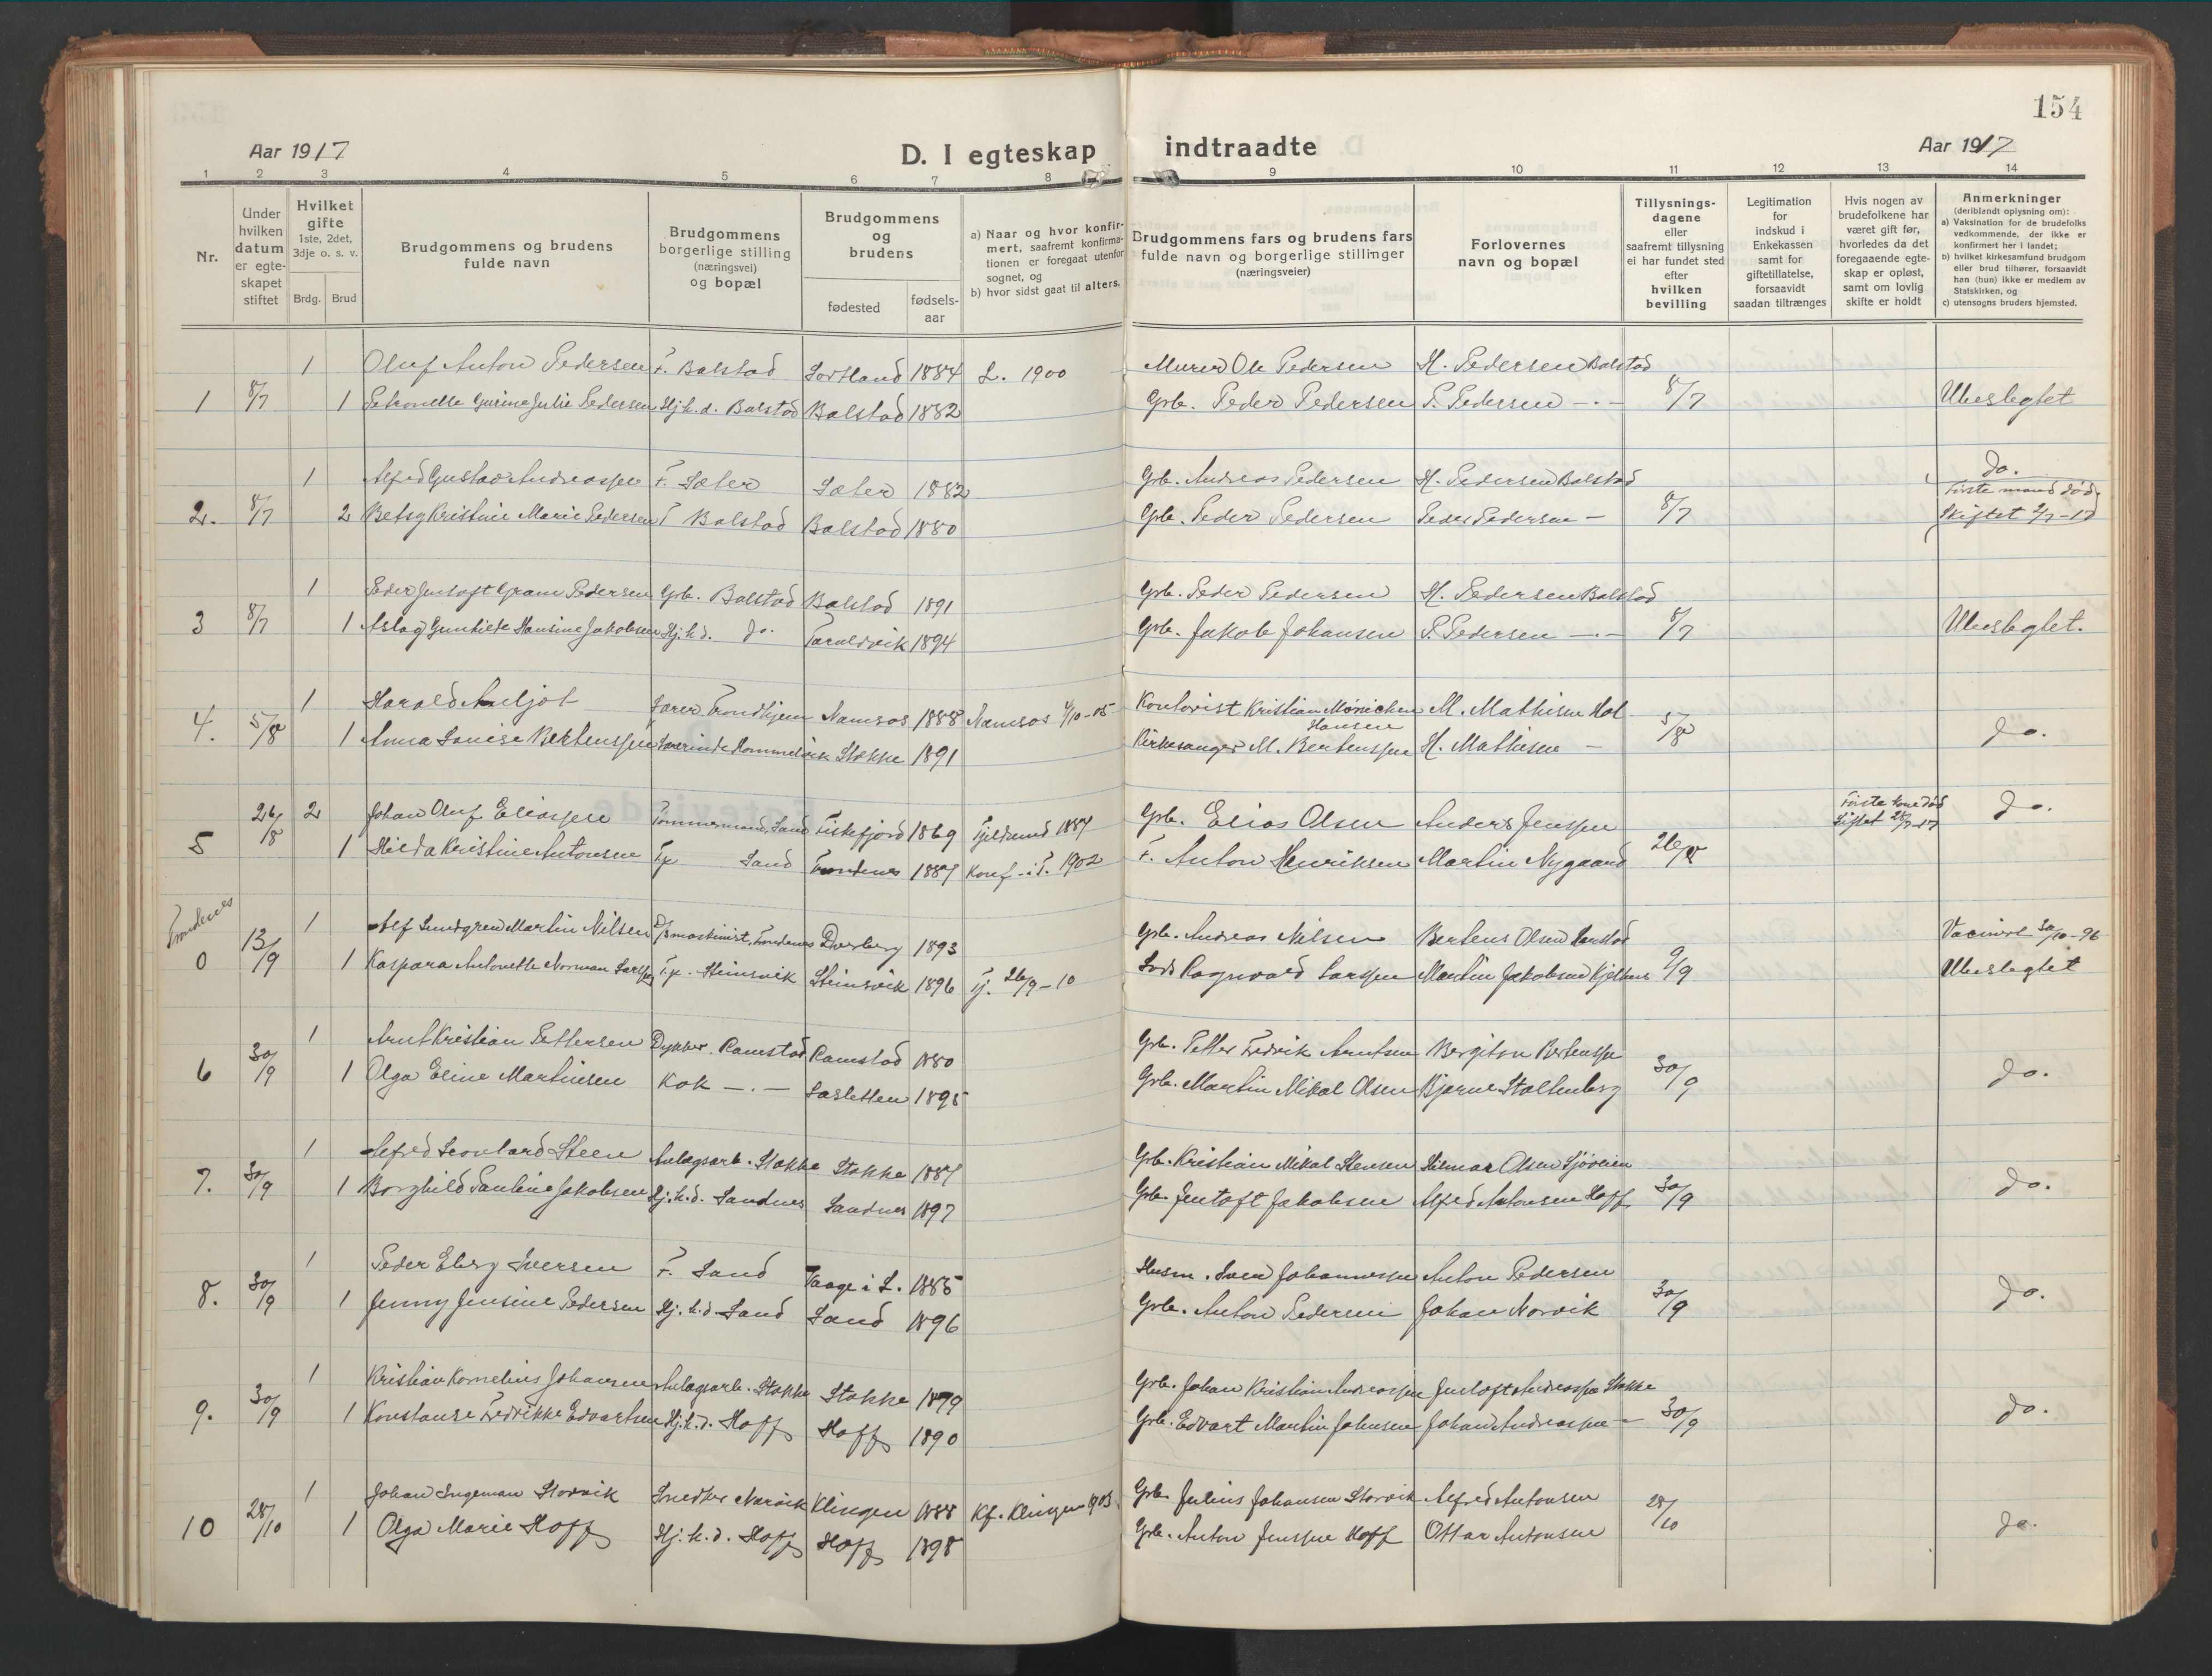 154
Aar 1917
D. I egteskap indtraadte
Aar 1917
1 2 3 4 5 6 7 8 9 10 11 12 13 14
Nr.
Under hvilken datum er egte-skapet stiftet
Hvilket gifte
1ste, 2det, 3dje o. s. v.
Brdg. Brud
Brudgommens og brudens fulde navn
Brudgommens borgerlige stilling (næringsvei) og bopæl
Brudgommens og brudens
fødested
fødsels-aar
a) Naar og hvor konfir-mert, saafremt konfirma-tionen er foregaat utenfor sognet, og
b) hvor sidst gaat til alters.
Brudgommens fars og brudens fars fulde navn og borgerlige stillinger (næringsveier)
Forlovernes navn og bopæl
Tillysnings-dagene eller saafremt tillysning ei har fundet sted efter hvilken bevilling
Legitimation for indskud i Enkekassen samt for giftetillatelse, forsaavidt saadan tiltrænges
Hvis nogen av brudefolkene har været gift før, hvorledes da det foregaaende egte-skap er opløst, samt om lovlig skifte er holdt
Anmerkninger
(deriblandt oplysning om):
a) Vaksination for de brudefolks vedkommende, der ikke er konfirmert her i landet;
b) hvilket kirkesamfund brudgom eller brud tilhører, forsaavidt han (hun) ikke er medlem av Statskirken, og
c) utensogns bruders hjemsted.
1 Oluf Anton Pedersen F. Balstad Sortland 1884 S. 1900 Murer Ole Pedersen H. Pedersen Balstad
1 8/7 1 Petronelle Gurine Julie Pedersen Hj. h. d. Balstad Balstad 1882 Grb. Peder Pedersen P. Pedersen —.— 8/7 Ubeslegtet
1 Alfred Gustav Andreassen F. Sæter Sæter 1882 Grb. Andreas Pedersen H. Pedersen Balstad do.
2. 8/7 2 Betsy Kristine Marie Pedersen F Balstad Balstad 1880 Grb. Peder Pedersen Peder Pedersen — 8/7 Første mand død. Skiftet 2/7-17
1 Peder Jentoft Gram Pedersen Grb. Balstad Balstad 1891 Grb. Peder Pedersen H. Pedersen Balstad
3 8/7 1 Aslag Hansine Jakobsen Hj. h. d. do. Taraldsvik 1894 Grb. Jakob Johansen P. Pedersen —.— 8/7 Ubeslegtet.
1 Harald Lærer, Trondhjem Namsos 1888 Namsos 1/10-05 Kontorist Kristian Mønichen Hansen M. Mathisen Hol
4. 5/8 1 Anna Louise Bertenssen Lærerinde Hommelvik Stokke 1891 Kirkesanger M. Bertenssen H. Mathisen — 5/8 do.
26/8 2 Johan Oluf Eliassen Tømmermand, Sand Fiskefjord 1869 Tjeldsund 1887 Grb. Elias Olsen Anders Jenssen Første kone død Skiftet 28/7-17 do.
5 1 Hilda Kristine Antonsen Tp Sand Trondenes 1887 Konf. i T. 1902 F. Anton Henriksen Martin Nygaard 26/8
Trondenes
1 Alf Lundgren Martin Nilsen D/S maskinist, Trondenes Dverberg 1893 Grb. Andreas Nilsen Bertens Olsen Harstad Vacineret 30/10-96
0 13/9 1 Kaspara Antonette Norman Larssen Tp. Steinsvik Steinsvik 1896 Tj. 26/9-10 Lods Ragnvald Larssen Martin Jakobsen 9/9 Ubeslegtet
1 Arnt Kristian Pettersen Dykker. Ramstad Ramstad 1880 Grb. Petter Fedrik Arntsen Bergiton Bertenssen
6 30/9 1 Olga Eline Martinsen Kok —.— Sasletten 1895 Grb. Martin Mikal Olsen Bjarne Stoltenberg 30/9 do.
1 Alfred Leonhard Steen Anlægsarb. Stokke Stokke 1887 Grb. Kristian Mikal Stensen Hilmar Olsen Sjøveien
7. 30/9 1 Borghild Pauline Jakobsen Hj. h. d. Sandnes Sandnes 1897 Grb. Jentoft Jakobsen Alfred Antonsen Hoff 30/9 do.
1 Peder Eberg Iversen F. Sand Vaage i L. 1885 Husm. Iver Johannessen Anton Pedersen
8. 30/9 1 Jenny Jensine Pedersen Hj. h. d. Sand Sand 1896 Grb. Anton Pedersen Johan Norvik 30/9 do.
1 Kristian Kornelius Johansen Anlægsarb. Stokke Stokke 1879 Grb. Johan Kristian Andreassen Jentoft Andreassen Stokke
9. 30/9 1 Konstanse Fredrikke Edvartsen Hj. h. d. Hoff Hoff 1890 Grb. Edvart Martin Johnsen Johan Andreassen — 30/9 do.
1 Johan Ingeman Storvik Snedker Narvik Klingen 1888 Kf. Klingen 1903 Grb. Julius Johansen Storvik Alfred Antonsen
10 28/10 1 Olga Marie Hoff Hj. h. d. Hoff Hoff 1898 Grb. Anton Jenssen Hoff Ottar Antonsen 28/10 do.